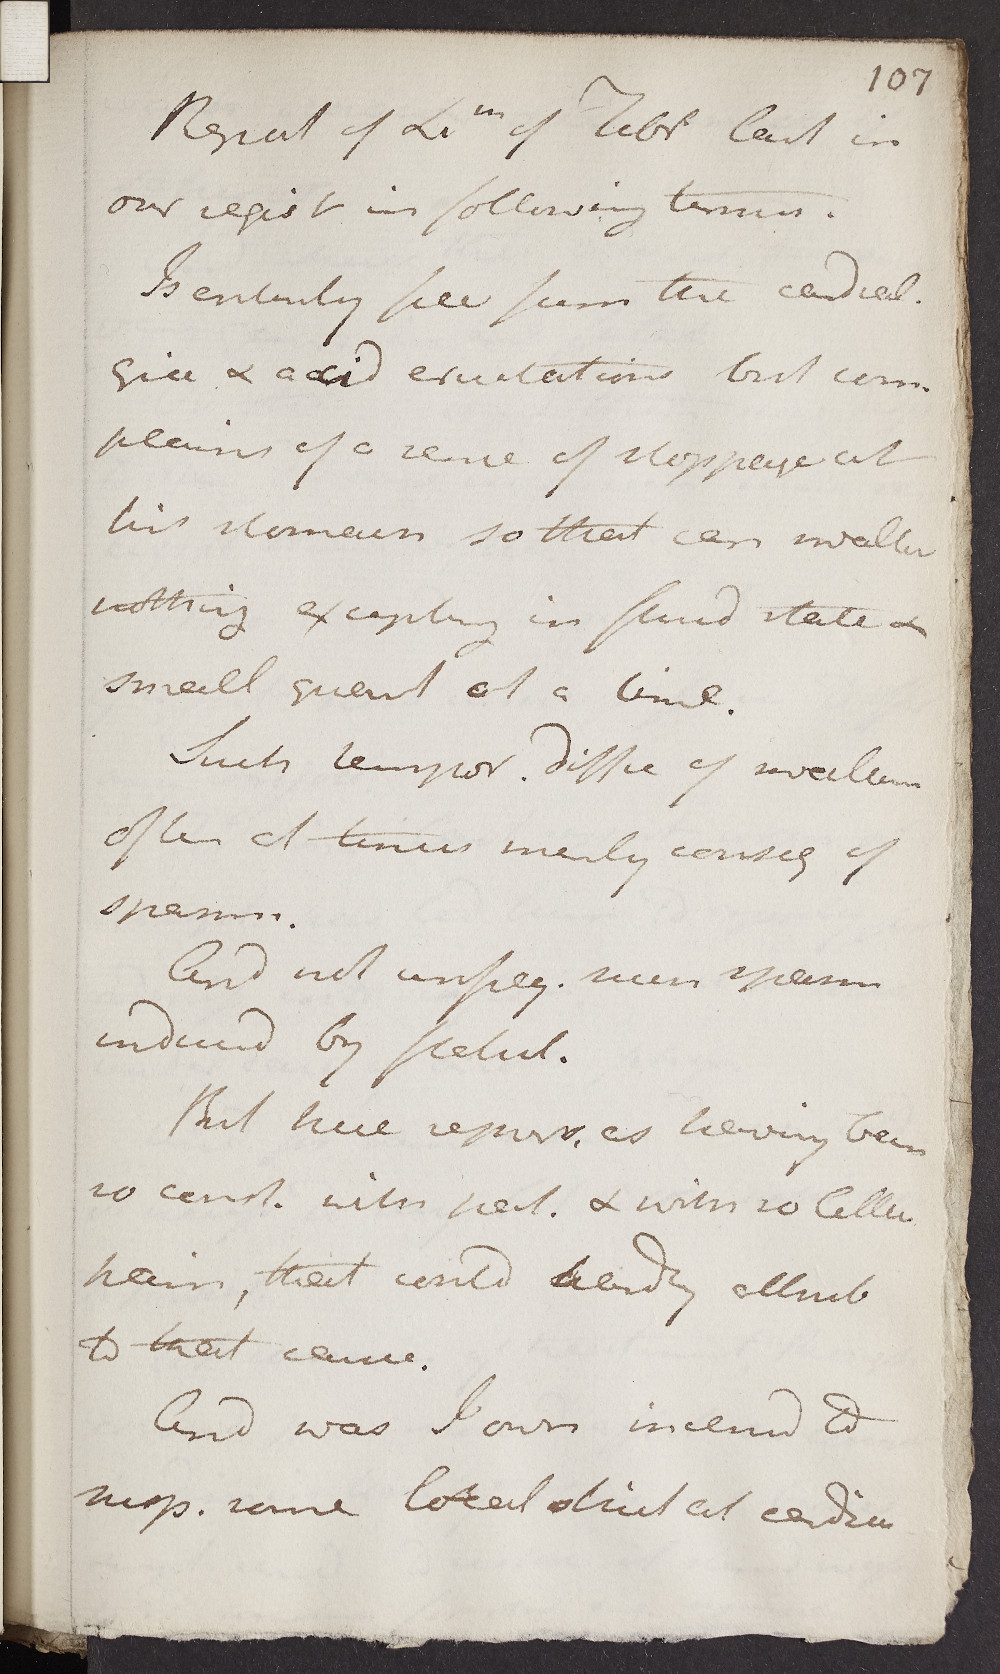 107
Report of of Febr last in
our regist in following terms.
Is entirely free from the cardial.
giæ & acid eructations but com.
plains of a sense of stoppage at
his stomach so that can swallow
nothing excepting in fluid state &
small quant at a time.
Such tempor. diffic of swallow
often at times merely conseq of
spasm.
And not unfreq. such spasm
induced by flatul.
But here repres. as having been
so const. with pat. & with so little
pain, that could hardly attrib
to that cause.
And was I own inclined to
susp. some local strict at cardia